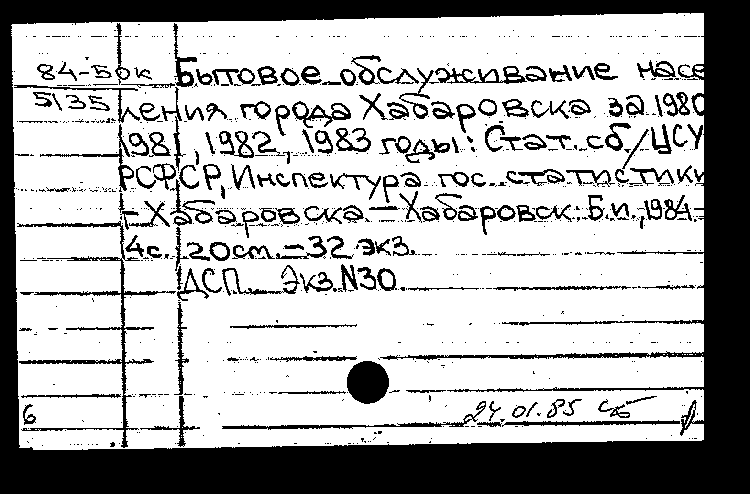 84-5ок Бытовое обслуживание насе
5135 ления города Хабаровска за 1980
1981, 1982, 1983 годы: Стат. сб./ЦСУ
РСФСР, Инспектура гос. статистики
- Хабаровска. - Хабаровск: Б.и., 1984-
4с. 20см. - 32 экз.
ДСП. Экз. N30.
6
24.01.85